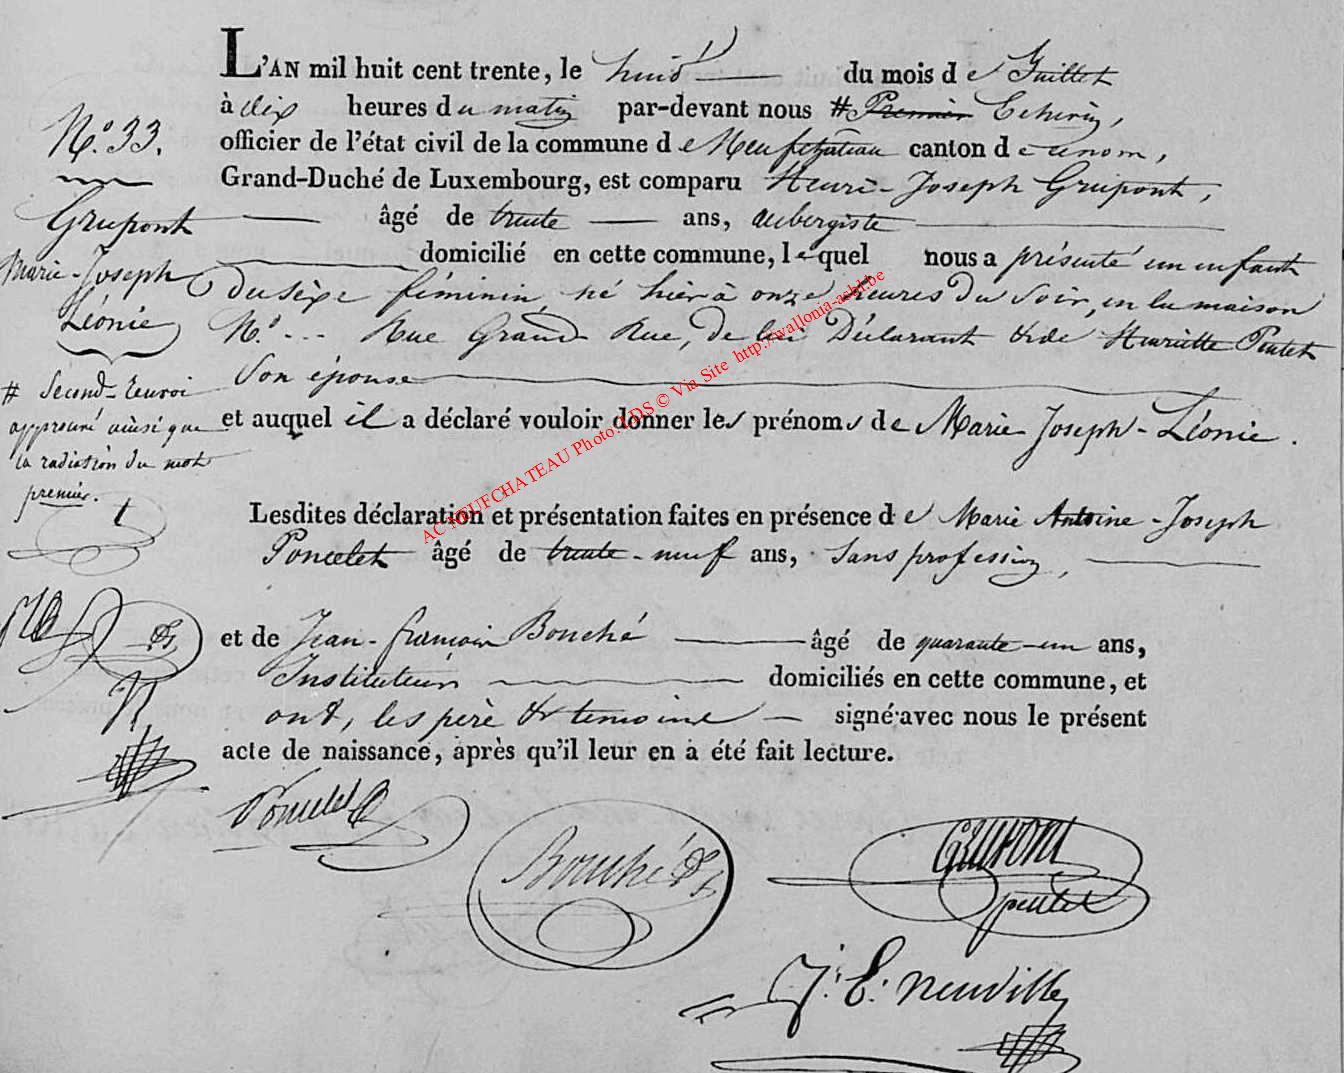 L'AN mil huit cent trente, le huit du mois de Juillet
à dix heures du matin par-devant nous # Premier Echevin,
officier de l'état civil de la commune de Neufchâteau canton de ce nom,
Grand-Duché de Luxembourg, est comparu Henri-Joseph Grupont,
âgé de trente ans, aubergiste
domicilié en cette commune, lequel nous a présenté un enfant
du sexe féminin, né hier à onze heures du Soir, en la maison
N.º --- Rue Grand Rue, de lui Déclarant & de Henriette Pentet
Son épouse
et auquel il a déclaré vouloir donner les prénoms de Marie-Joseph-Léonie.
Lesdites déclaration et présentation faites en présence de Marie Antoine-Joseph
Poncelet âgé de trente-neuf ans, Sans profession,
et de Jean-françois Bouché âgé de quarante-un ans,
Instituteur domiciliés en cette commune, et
ont, les père & temoins signé avec nous le présent
acte de naissance, après qu'il leur en a été fait lecture.
N.º 33.
Grupont
Marie-Joseph
Léonie
# Second-Renvoi
approuvé ainsi que
la radiation du mot
premier.
Poncelet
Bouché
GRUPONT
pentet
J. E. Neuville
AC NEUFCHATEAU Photo ADS © Via Site http://wallonia-asbl.be